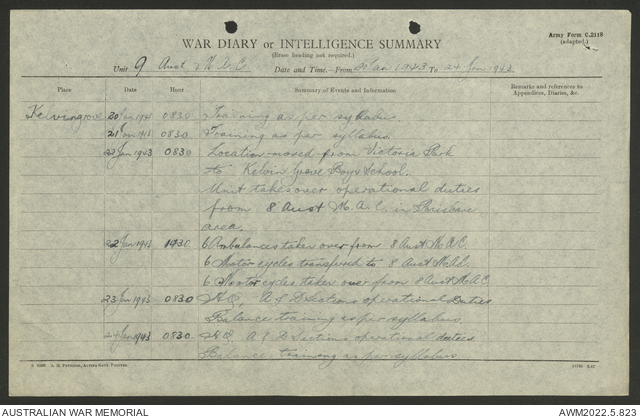 Army Form C.2118
(adapted.)
WAR DIARY or INTELLIGENCE SUMMARY
(Erase heading not required.)
Unit 9 Aust M.A.C. Date and Time.—From 20 Jan 1943 To 24 Jan 1943
Place Date Hour Summary of Events and Information Remarks and references to Appendices, Diaries, &c.
Kelvingrove 20 Jan 1943 0830 Training as per syllabus.
21 Jan 1943 0830 Training as per syllabus.
22 Jan 1943 0830 Location moved from Victoria Park
to Kelvin Grove Boys School.
Unit takes over operational duties
from 8 Aust M.A.C. in Brisbane
area.
22 Jan 1943 1930 6 Ambulances taken over from 8 Aust M.A.C.
6 Motor cycles transferred to 8 Aust M.A.C.
6 Motor cycles taken over from 8 Aust M.A.C.
23 Jan 1943 0830 H.Q., A & D Sections operational Duties
Balance training as per syllabus
24 Jan 1943 0830 H.Q. A & D Sections operational duties
Balance training as per syllabus
AUSTRALIAN WAR MEMORIAL AWM2022.5.823